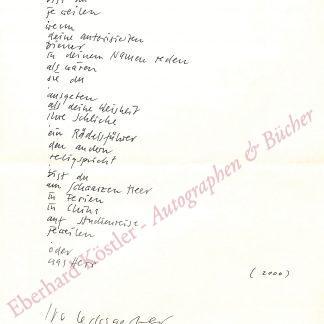 bist du
jeweilen
wenn
deine autorisierten
Diener
in deinem Namen reden
als wären
sie du
ausgeben
als deine Weisheit
ihre Schliche
ein Rädelsführer
den andern
seligspricht
bist du
am schwarzen Meer
in Ferien
in China
auf Studienreise
jeweilen
oder
was Herr
(2000)
Eberhard Köstler - Autographen & Bücher